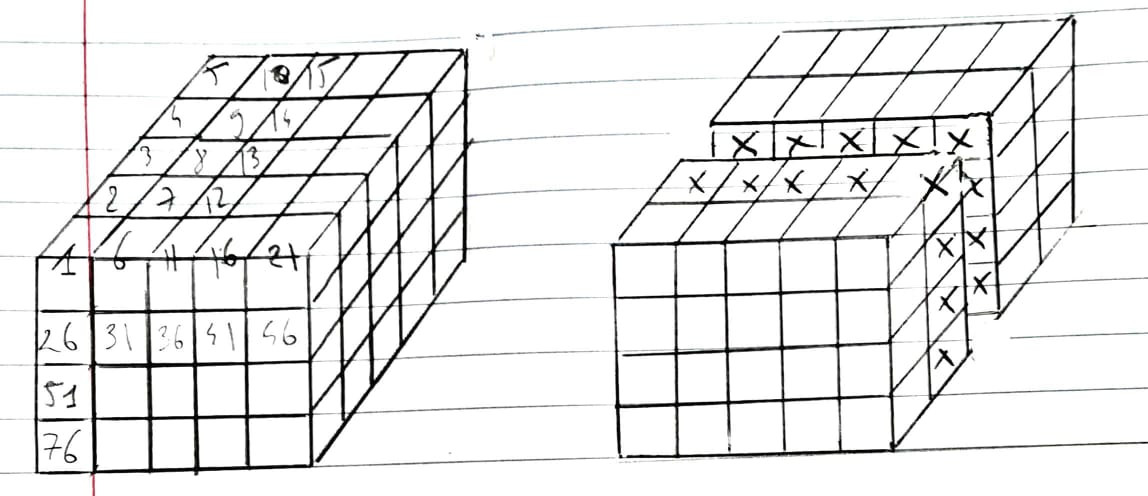 5 10 15
4 9 14
3 8 13
2 7 12
1 6 11 16 21
26 31 36 41 46
51
76
x x x x x
x x x x x x
x x
x x
x